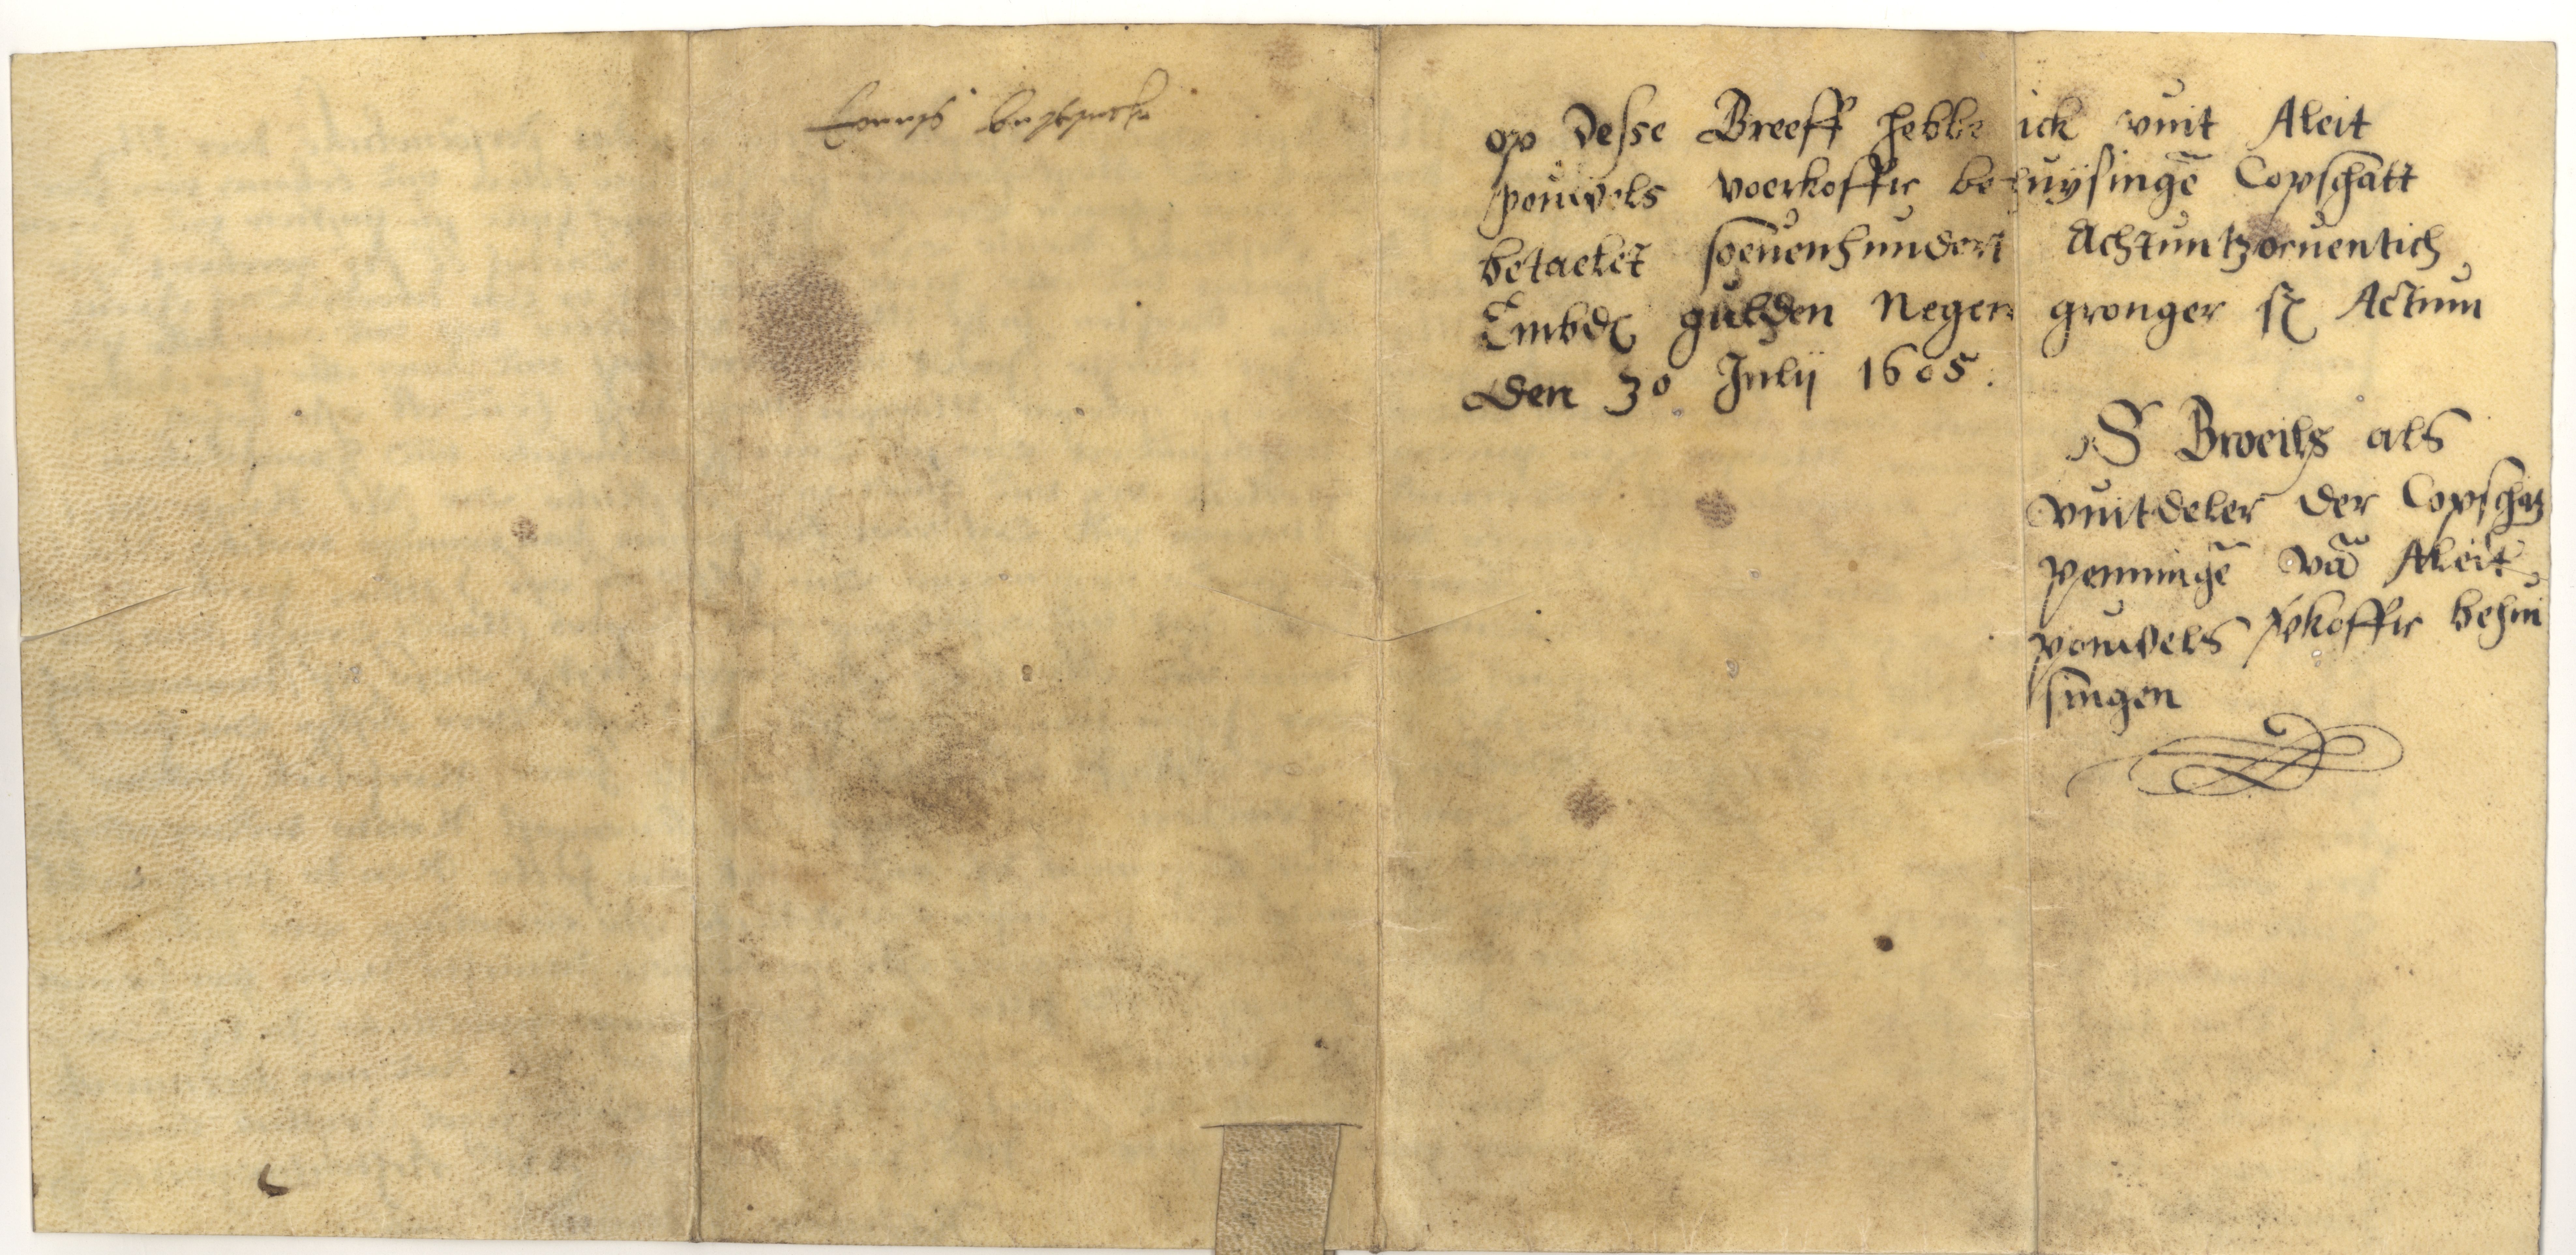 op desse Breeff hebbe ick vuit Aleit
pouwels voerkoffte behuysingē Copschatt
betaelet soeuenhundert Achtuntzoeuentich
Embd gulden Negen gronger ß Actum
den 30 Julij 1605.
S Broeils als
vuitdeler der Copschatz
penningē vā Aleit
pouwels vkoffte behui
singen